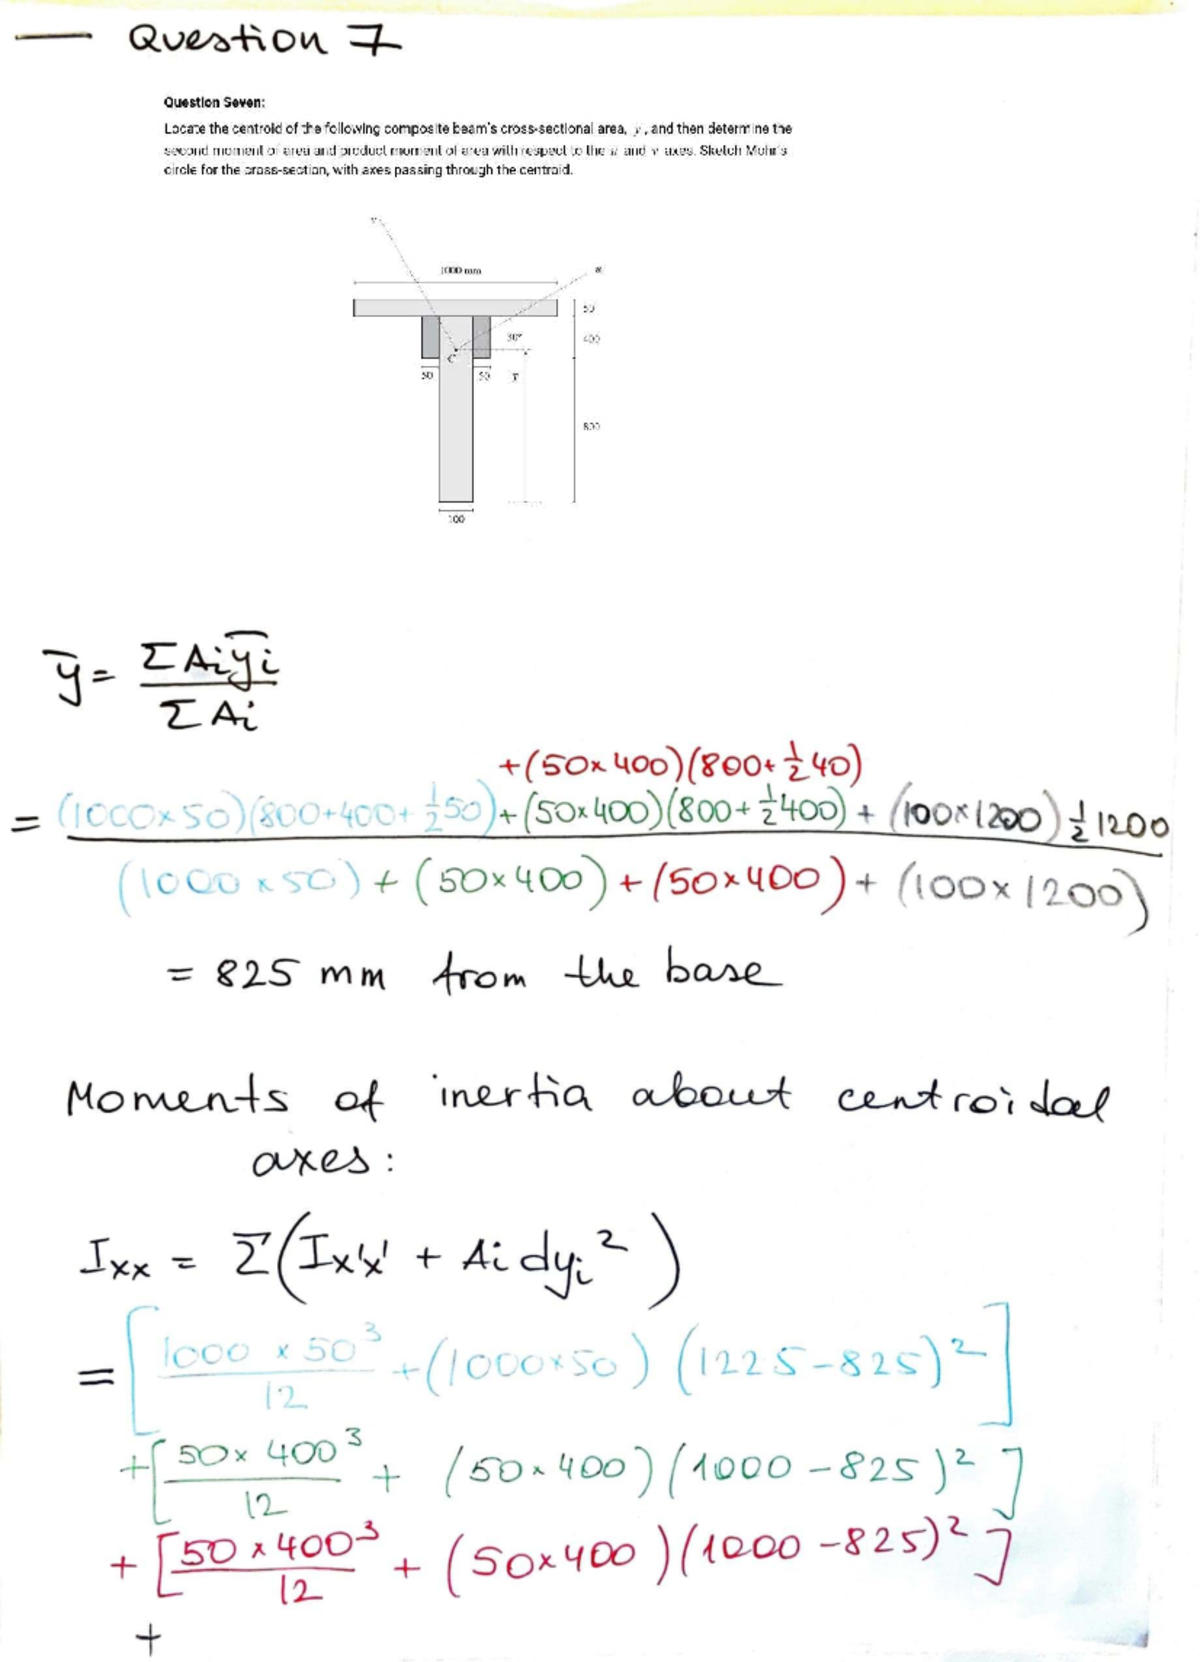 — Question 7
Question Seven:
Locate the centroid of the following composite beam's cross-sectional area, y, and then determine the
second moment of area and product moment of area with respect to the u and v axes. Sketch Mohr's
circle for the cross-section, with axes passing through the centroid.
v
1000 mm
u
50
30°
400
C
50
50
y
800
100
ȳ = ΣAiȳi / ΣAi
+(50×400)(800+½40)
= (1000×50)(800+400+½50)+(50×400)(800+½400) + (100×1200)½1200
(1000×50)+(50×400)+(50×400)+(100×1200)
= 825 mm from the base
Moments of inertia about centroidal
axes:
Ixx = Σ(Ix'x' + Ai dyi²)
= [1000 × 50³/12 + (1000×50) (1225-825)²]
+[50× 400³/12 + (50×400)(1000-825)²]
+[50×400³/12 + (50×400)(1000-825)²]
+